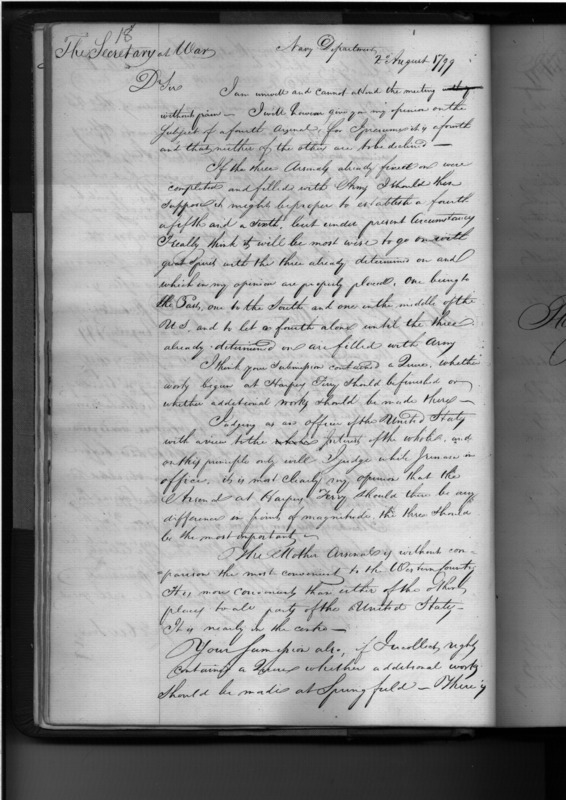 18
The Secretary at War
Navy Department
2d August 1799
Dr Sir
I am unwell and cannot attend the meeting
without pain — I will however give you my opinion on the
Subject of a fourth Arsenal, for I presume it is a fourth
and that neither of the other are to be declined —
If the three Arsenals already fixed on were
completed and filled with Arms I should then
suppose it might be proper to establish a fourth
a fifth and a Sixth, but under present Circumstances
I really think it will be most wise to go on with
great spirit with the three already determined on and
which in my opinion are properly placed, One being to
the East, one to the South and one in the middle of the
U S. and to let a fourth alone until the three
already determined on are filled with Arms
I think your Submission contained a Quere, whether
works begun at Harpers Ferry should be finished or
whether additional works should be made there —
Judging as an officer of the United States
with a view to the Interests of the whole, and
on this principle only will I judge while I remain in
office, it is most clearly my opinion that the
Arsenal at Harpers Ferry should there be any
difference in point of magnitude the three should
be the most important —
The Mother Arsenal is without com-
parison the most convenient to the Western Country
It is more convenient than either of the other
places to all parts of the United States —
It is nearly in the centre —
Your Submission also, if I recollect rightly
contained a Quere whether additional works
should be made at Springfield — There is